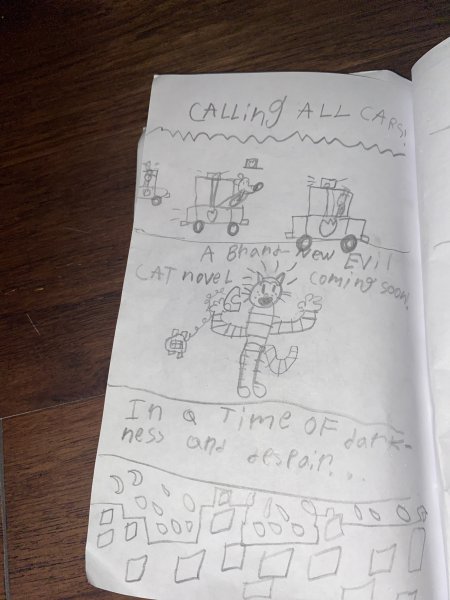 CALLing ALL CARS!
A Brand New Evil
CAT novel coming soon!
In a Time OF dark-
ness and despair...